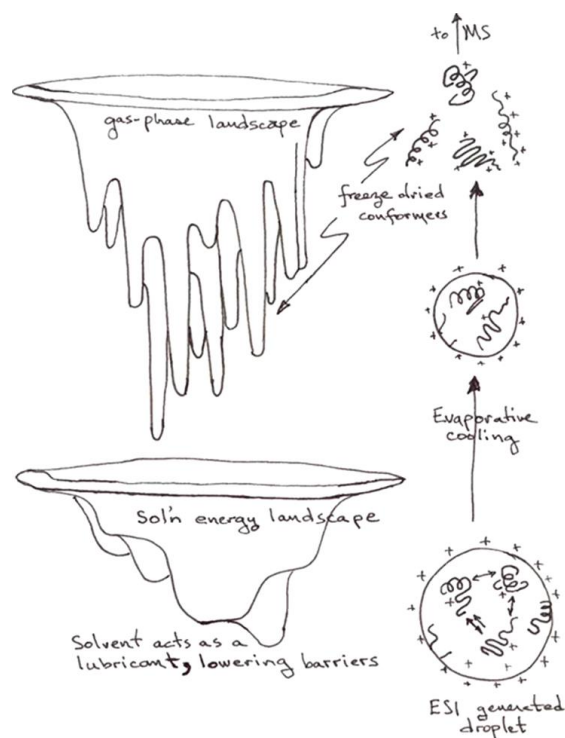 to MS
gas-phase landscape
freeze dried
conformers
Evaporative
cooling
Sol'n energy landscape
Solvent acts as a
lubricant, lowering barriers
ESI generated
droplet